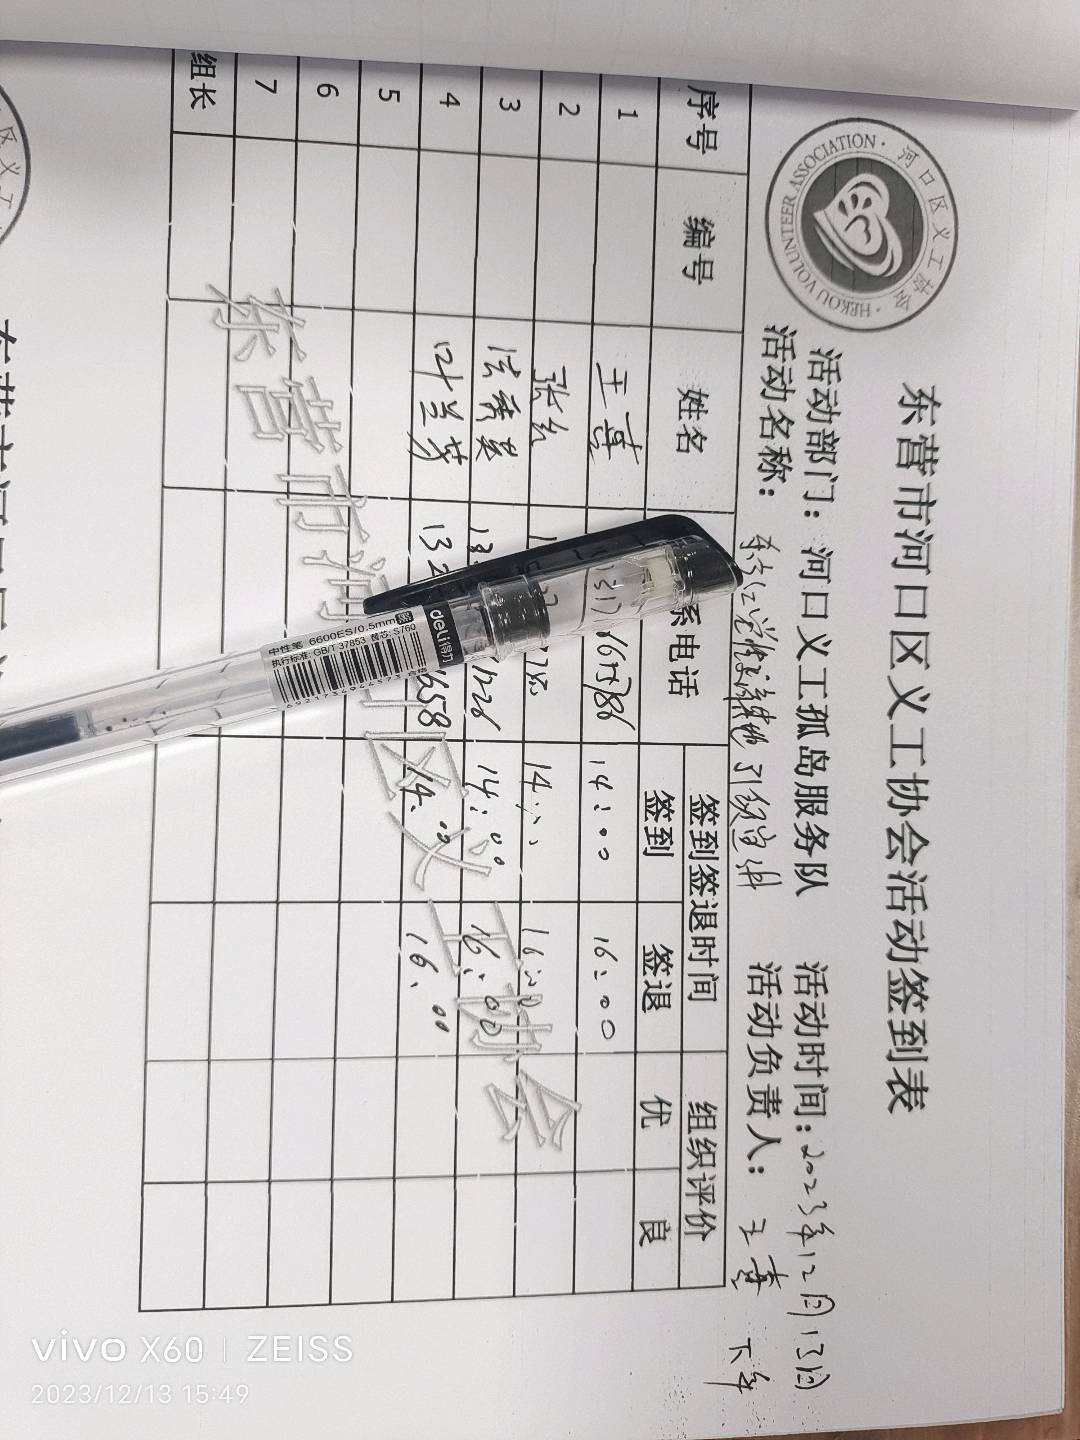 东营市河口区义工协会活动签到表
河口区义工协会
HEKOU VOLUNTEER ASSOCIATION
活动部门：河口义工孤岛服务队 活动时间：2023年12月13日
活动名称： 活动负责人：王喜 下午
序号 编号 姓名 系电话 签到签退时间 组织评价
签到 签退 优 良
1 王喜 14:00 16:00
2 张 14:00 16:00
3 1226 14:00 16:00
4 叶兰芳 132 1658 14:00 16:00
5
6
7
组长
东营市河 区义工协会
deli得力
中性笔 6600ES/0.5mm 黑
执行标准: GB/T 37853 替芯: S760
6921734944573 合格
vivo X60 | ZEISS
2023/12/13 15:49